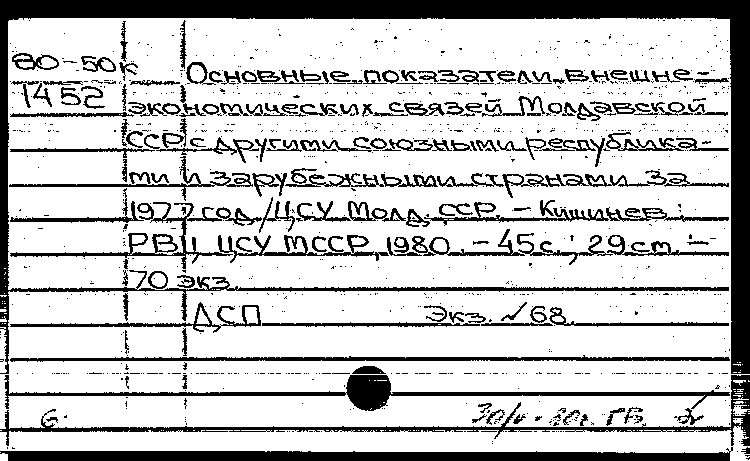 80-50к Основные показатели внешне-
1452 экономических связей Молдавской
ССР с другими союзными республика-
ми и зарубежными странами за
1977 год / ЦСУ Молд. ССР. - Кишинев :
РВЦ ЦСУ МССР, 1980. - 45 с. ; 29 см. -
70 экз.
ДСП Экз. № 68.
6. 30/ - 80г. ГВ.